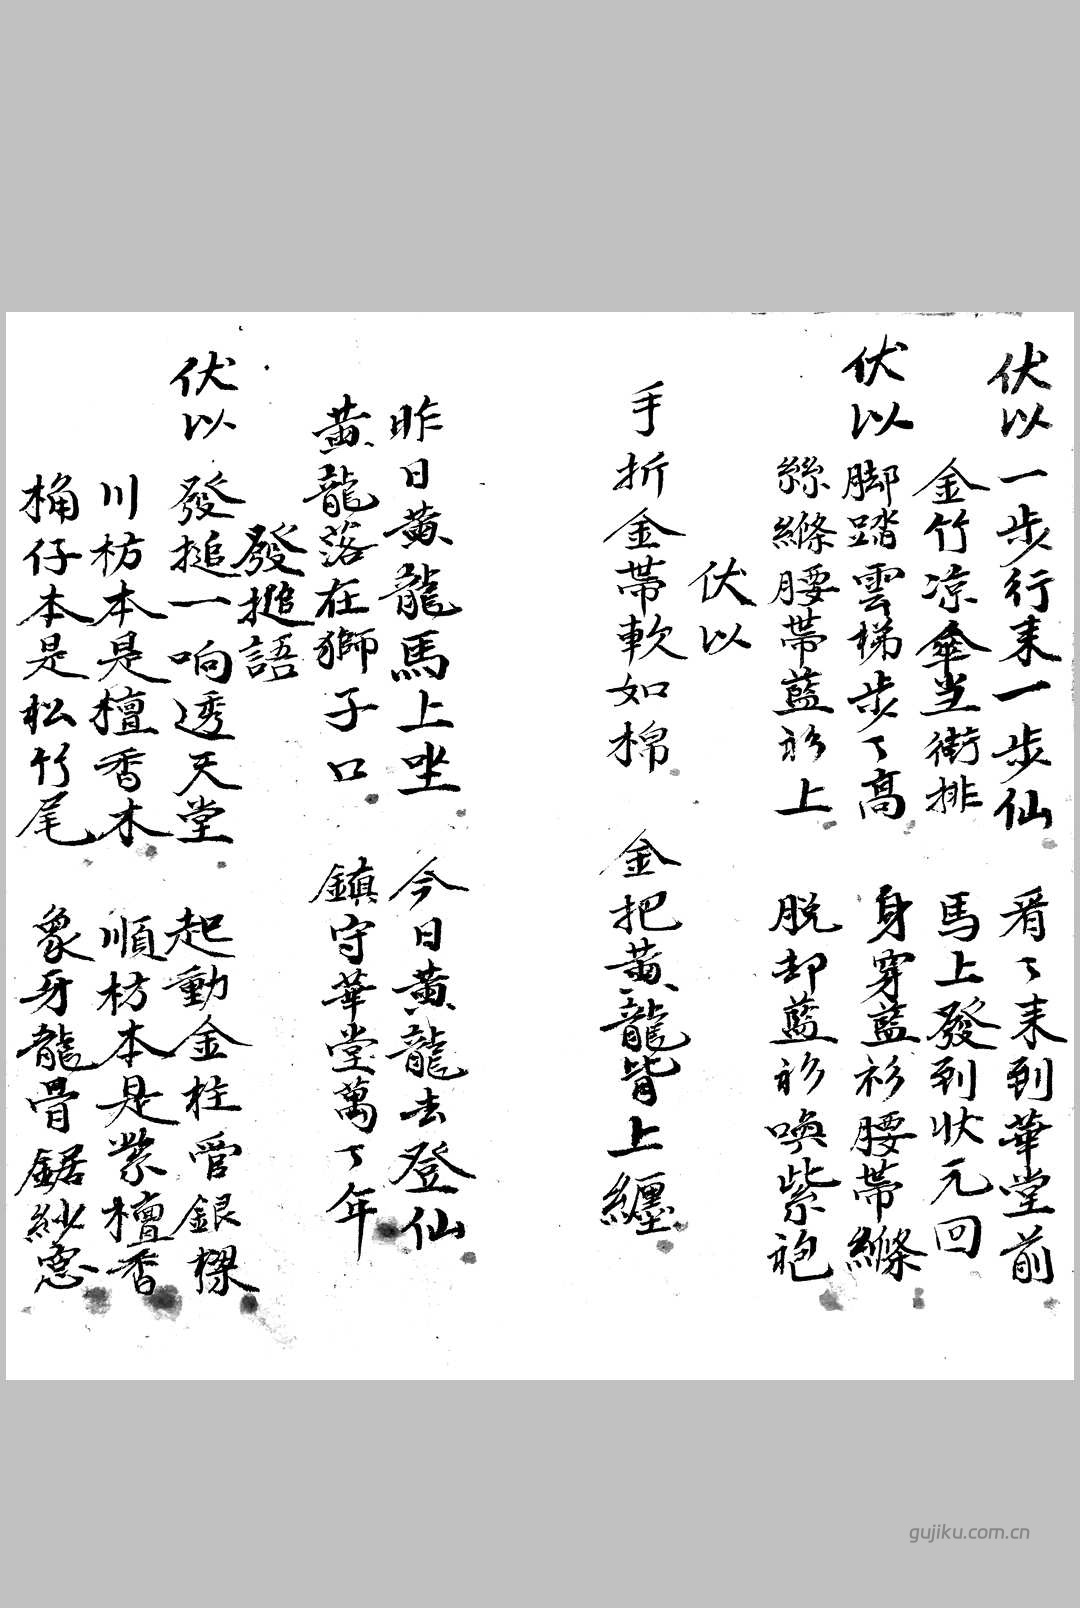 伏以一步行来一步仙　看々来到華堂前
金竹凉傘当街排　馬上發到状元回
伏以脚踏雲梯步々高　身穿藍衫腰帯縧
絲縧腰帯藍衫上　脱却藍衫喚紫袍
伏以
手折金帯軟如棉　金把黄龍背上纏
昨日黄龍馬上坐　今日黄龍去登仙
黄龍落在獅子口　鎮守華堂萬々年
發搥語
伏以發搥一响透天堂　起動金柱管銀樑
川枋本是檀香木　順枋本是紫檀香
桷仔本是松竹尾　象牙龍骨鋸紗窓
gujiku.com.cn